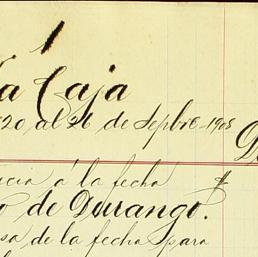 1
la Caja
20 al 26 de Sepbre - 1905
encia á la fecha #
o de Durango.
sa de la fecha para